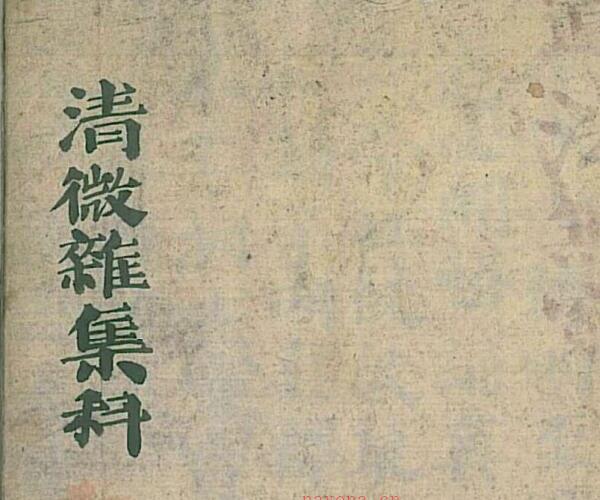 清微雜集科